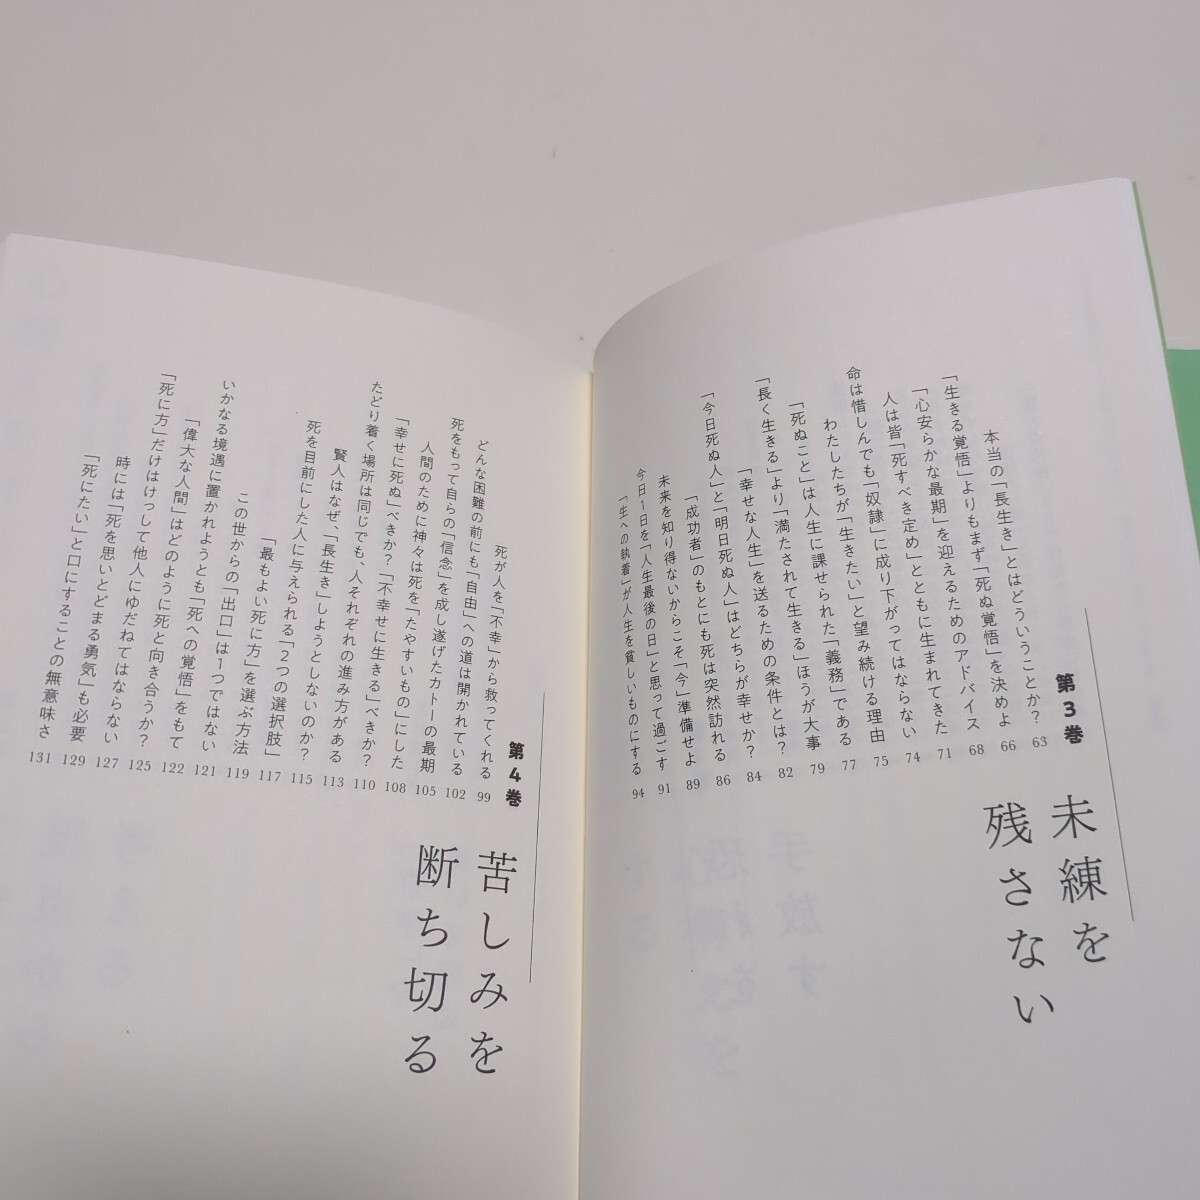 第3巻
未練を
残さない
本当の「長生き」とはどういうことか? 63
「生きる覚悟」よりもまず「死ぬ覚悟」を決めよ 66
「心安らかな最期」を迎えるためのアドバイス 68
人は皆「死すべき定め」とともに生まれてきた 71
命は惜しんでも「奴隷」に成り下がってはならない 74
わたしたちが「生きたい」と望み続ける理由 75
「死ぬこと」は人生に課せられた「義務」である 77
「長く生きる」より「満たされて生きる」ほうが大事 79
「幸せな人生」を送るための条件とは? 82
「今日死ぬ人」と「明日死ぬ人」はどちらが幸せか? 84
「成功者」のもとにも死は突然訪れる 86
未来を知り得ないからこそ「今」準備せよ 89
今日1日を「人生最後の日」と思って過ごす 91
「生への執着」が人生を貧しいものにする 94
第4巻
苦しみを
断ち切る
死が人を「不幸」から救ってくれる 99
どんな困難の前にも「自由」への道は開かれている 102
死をもって自らの「信念」を成し遂げたカトーの最期 105
人間のために神々は死を「たやすいもの」にした 108
「幸せに死ぬ」べきか?「不幸せに生きる」べきか? 110
たどり着く場所は同じでも、人それぞれの進み方がある 113
賢人はなぜ、「長生き」しようとしないのか? 115
死を目前にした人に与えられる「2つの選択肢」 117
「最もよい死に方」を選ぶ方法 119
この世からの「出口」は1つではない 121
いかなる境遇に置かれようとも「死への覚悟」をもて 122
「偉大な人間」はどのように死と向き合うか? 125
「死に方」だけはけっして他人にゆだねてはならない 127
時には「死を思いとどまる勇気」も必要 129
「死にたい」と口にすることの無意味さ 131